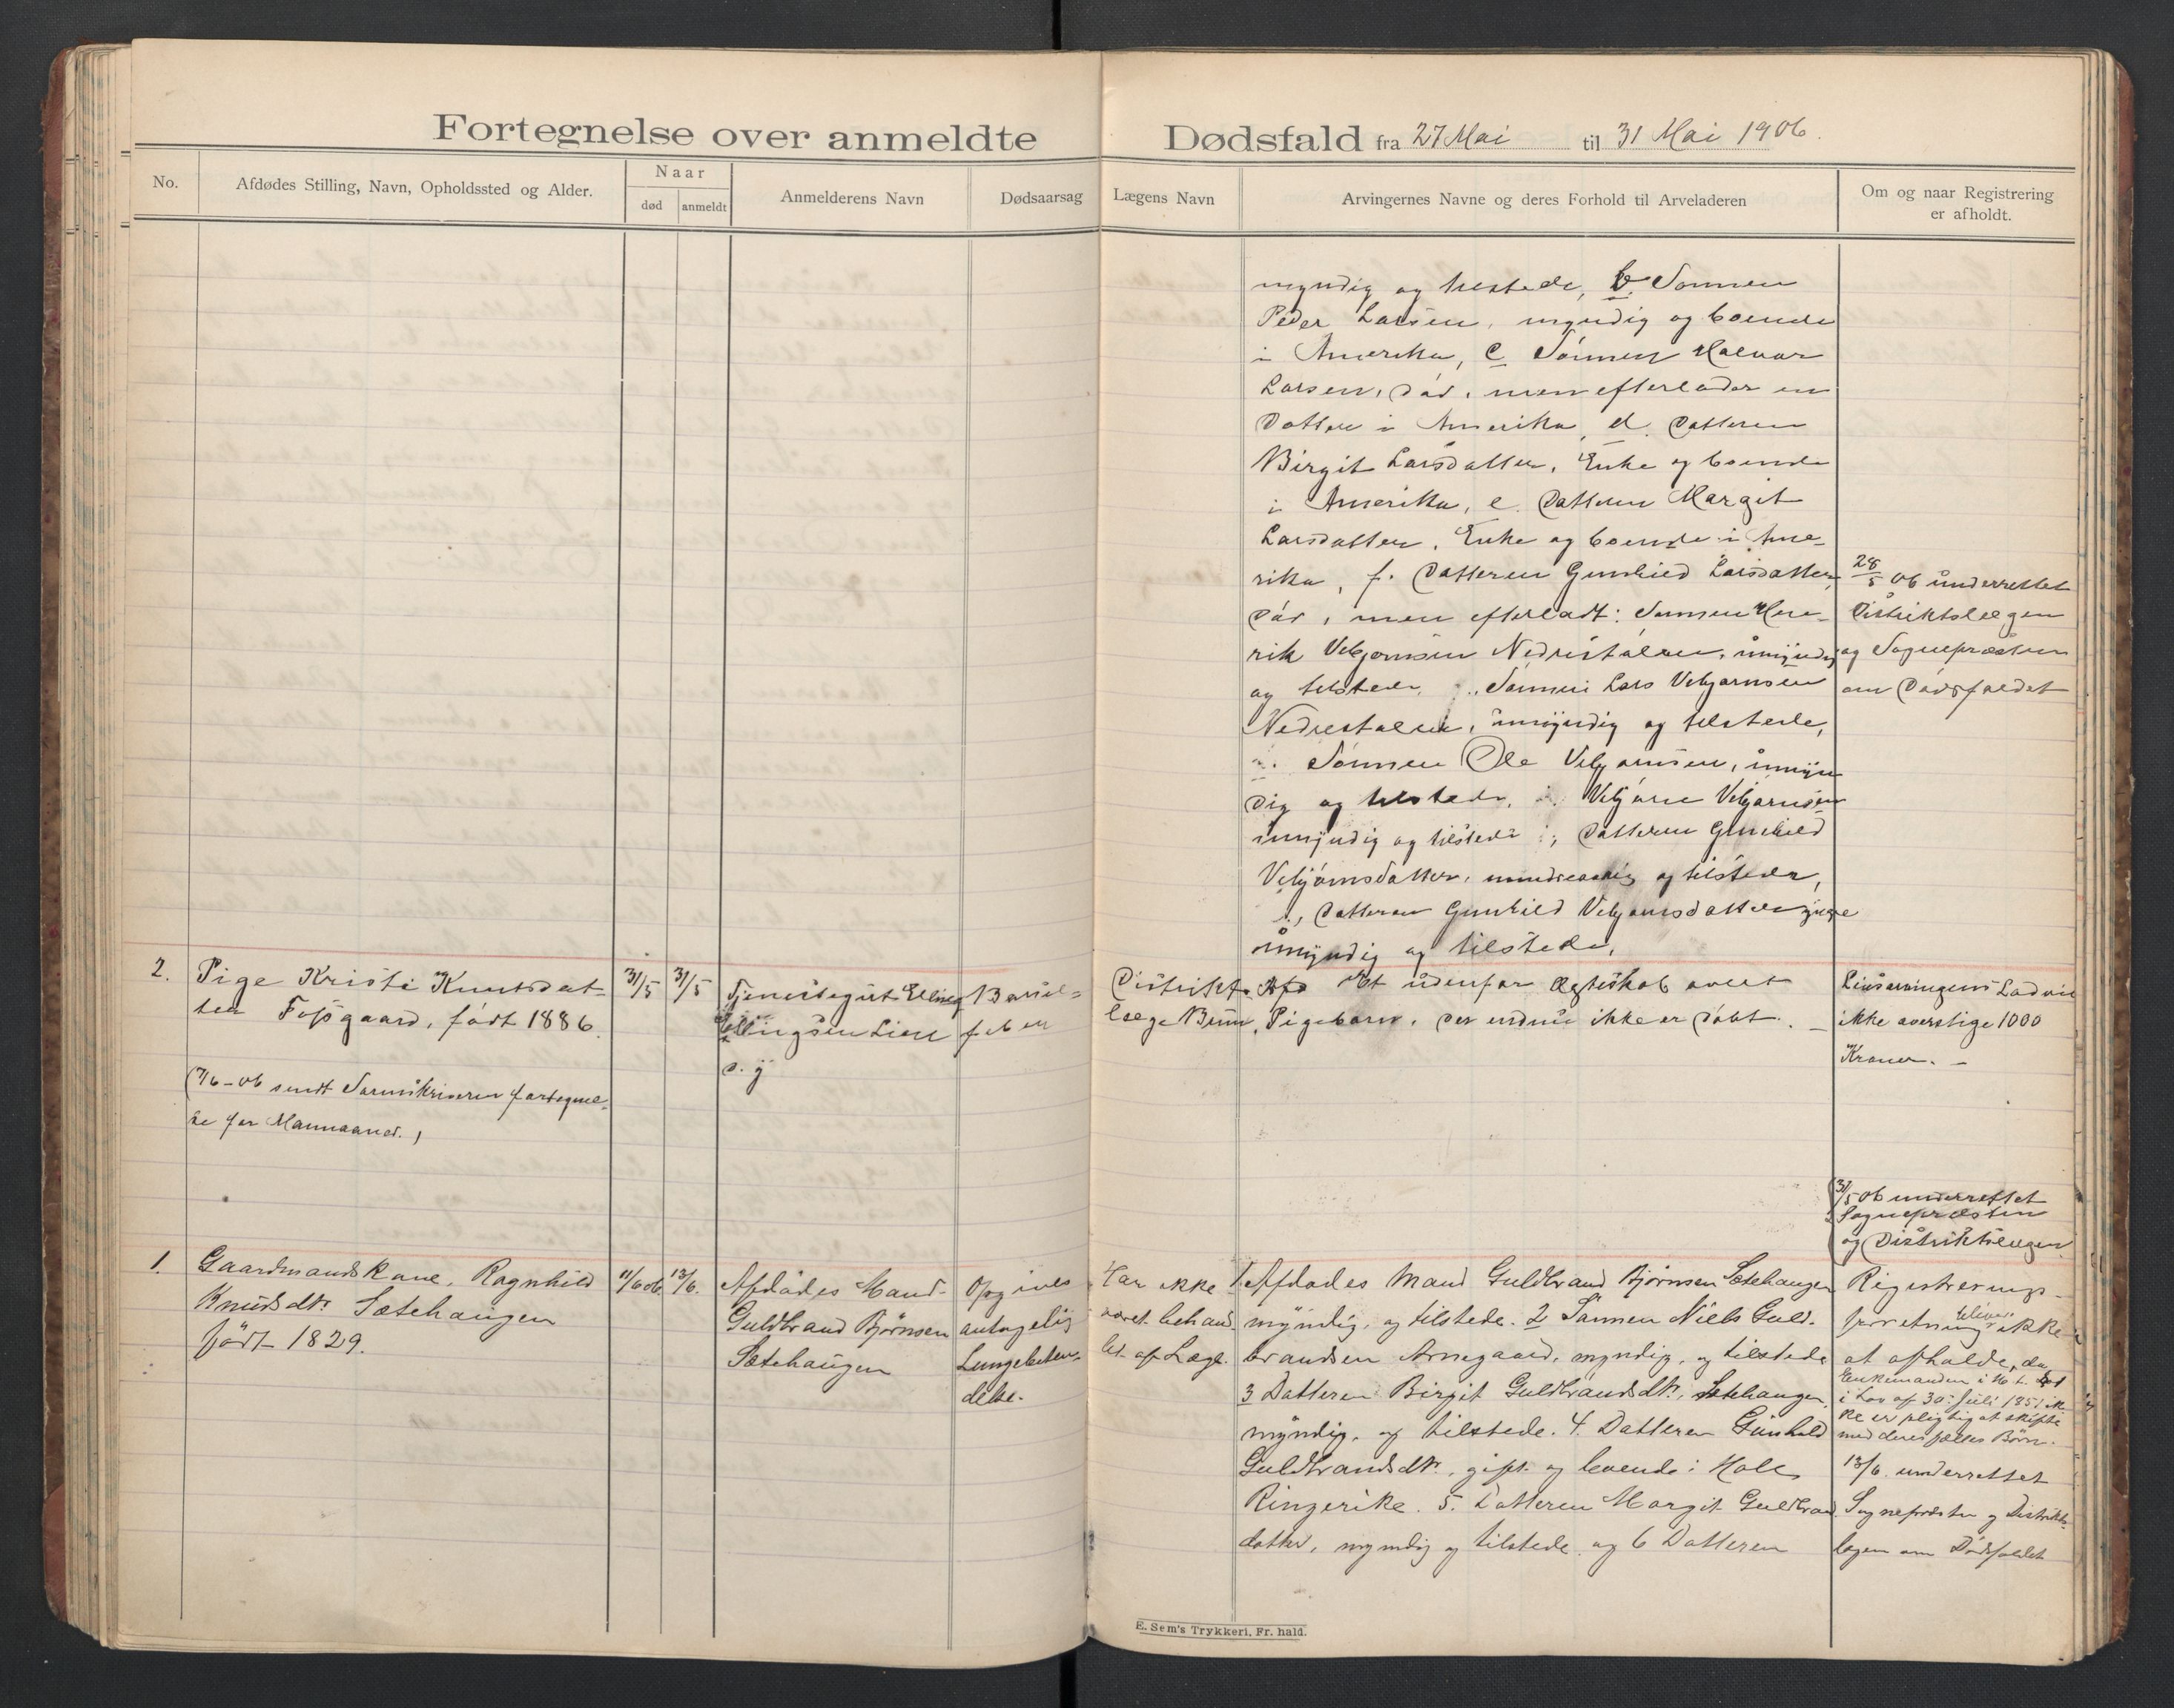 Fortegnelse over anmeldte Dødsfald fra 27 Mai til 31 Mai 1906.
No.
Afdødes Stilling, Navn, Opholdssted og Alder.
Naar
død
anmeldt
Anmelderens Navn
Dødsaarsag
Lægens Navn
Arvingernes Navne og deres Forhold til Arveladeren
Om og naar Registrering
er afholdt.
myndig og tilstede, b. Sønnen
Peder Larsen, myndig og boende
i Amerika, c Sønnen Halvor
Larsen, død, men efterlader en
Datter i Amerika, d. Datteren
Birgit Larsdatter, Enke og boende
i Amerika, e. Datteren Margit
Larsdatter, Enke og boende i Ame-
rika, f. Datteren Gunhild Larsdatter,
død, men efterladt: Sønnen Hen-
rik Vebjørnsen Nedrestølen, umyndig
og tilstede, Sønnen Lars Vebjørnsen
Nedrestølen, umyndig og tilstede,
Sønnen Ole Vebjørnsen, umyn
dig og tilstede, Vebjørn Vebjørnsen
umyndig og tilstede, Datteren Gunhild
Vebjørnsdatter, mindreaarig og tilstede,
Datteren Gunhild Vebjørnsdatter yngre
umyndig og tilstede,
28/5 06 underrettet
Distriktslægen
og Sognepræsten
om Dødsfaldet
2.
Pige Kristi Knutsdat-
ter Fossgaard, født 1886.
(7/6-06 sendt Sorenskriveren fortegnel-
se for Mai maaned.)
31/5
31/5
Tjenestegut Elling
Ellingsen Lien
d. y
Barsel-
feber
Distrikts
læge Bruun,
Et udenfor Ægteskab avlet
Pigebarn, der endnu ikke er døbt. -
Livsarvingens Lod vil
ikke overstige 1000
Kroner. -
(31/5 06 underrettet
Sognepræsten
og Distriktslægen
1.
Gaardmandskone, Ragnhild
Knudsdtr. Sætehaugen
født 1829.
11/6 06
13/6.
Afdødes Mand-
Guldbrand Bjørnsen
Sætehaugen
Opgives
antagelig
Lungebeten-
delse.
Har ikke
været behand-
let af Læge.
1 Afdødes Mand Guldbrand Bjørnsen Sætehaugen
myndig, og tilstede. 2 Sønnen Niels Guld-
brandsen Arnegaard, myndig, og tilstede
3 Datteren Birgit Guldbrandsdtr. Sætehaugen,
myndig, og tilstede. 4. Datteren Gunhild
Guldbrandsdtr., gift og boende i Hole
Ringerike. 5. Datteren Margit Guldbrand
datter, myndig og tilstede og 6 Datteren
Registrerings-
forretning bliver ikke
at afholde, da
Enkemanden i H. t.
i Lov af 30 Juli 1851 ik-
ke er pligtig at skifte
med deres fælles Børn.
13/6. underrettet
Sognepræsten og Distrikts-
lægen om Dødsfaldet
E. Sem's Trykkeri, Fr. hald.